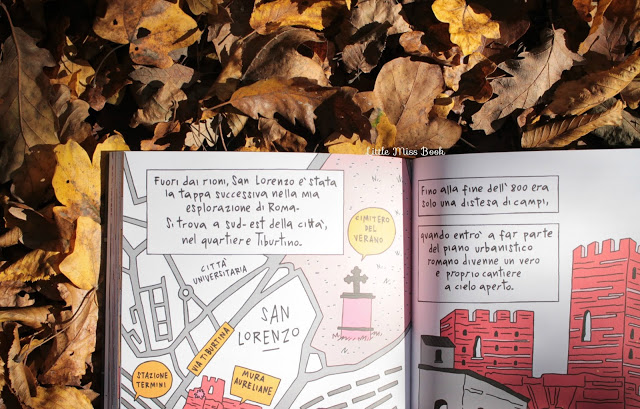 Little Miss Book
Fuori dai rioni, San Lorenzo e' stata
la tappa successiva nella mia
esplorazione di Roma.
Si trova a sud-est della citta',
nel quartiere Tiburtino.
CIMITERO
DEL
VERANO
CITTA'
UNIVERSITARIA
SAN
LORENZO
VIA TIBURTINA
STAZIONE
TERMINI
MURA
AURELIANE
Fino alla fine dell' 800 era
solo una distesa di campi,
quando entro' a far parte
del piano urbanistico
romano divenne un vero
e proprio cantiere
a cielo aperto.